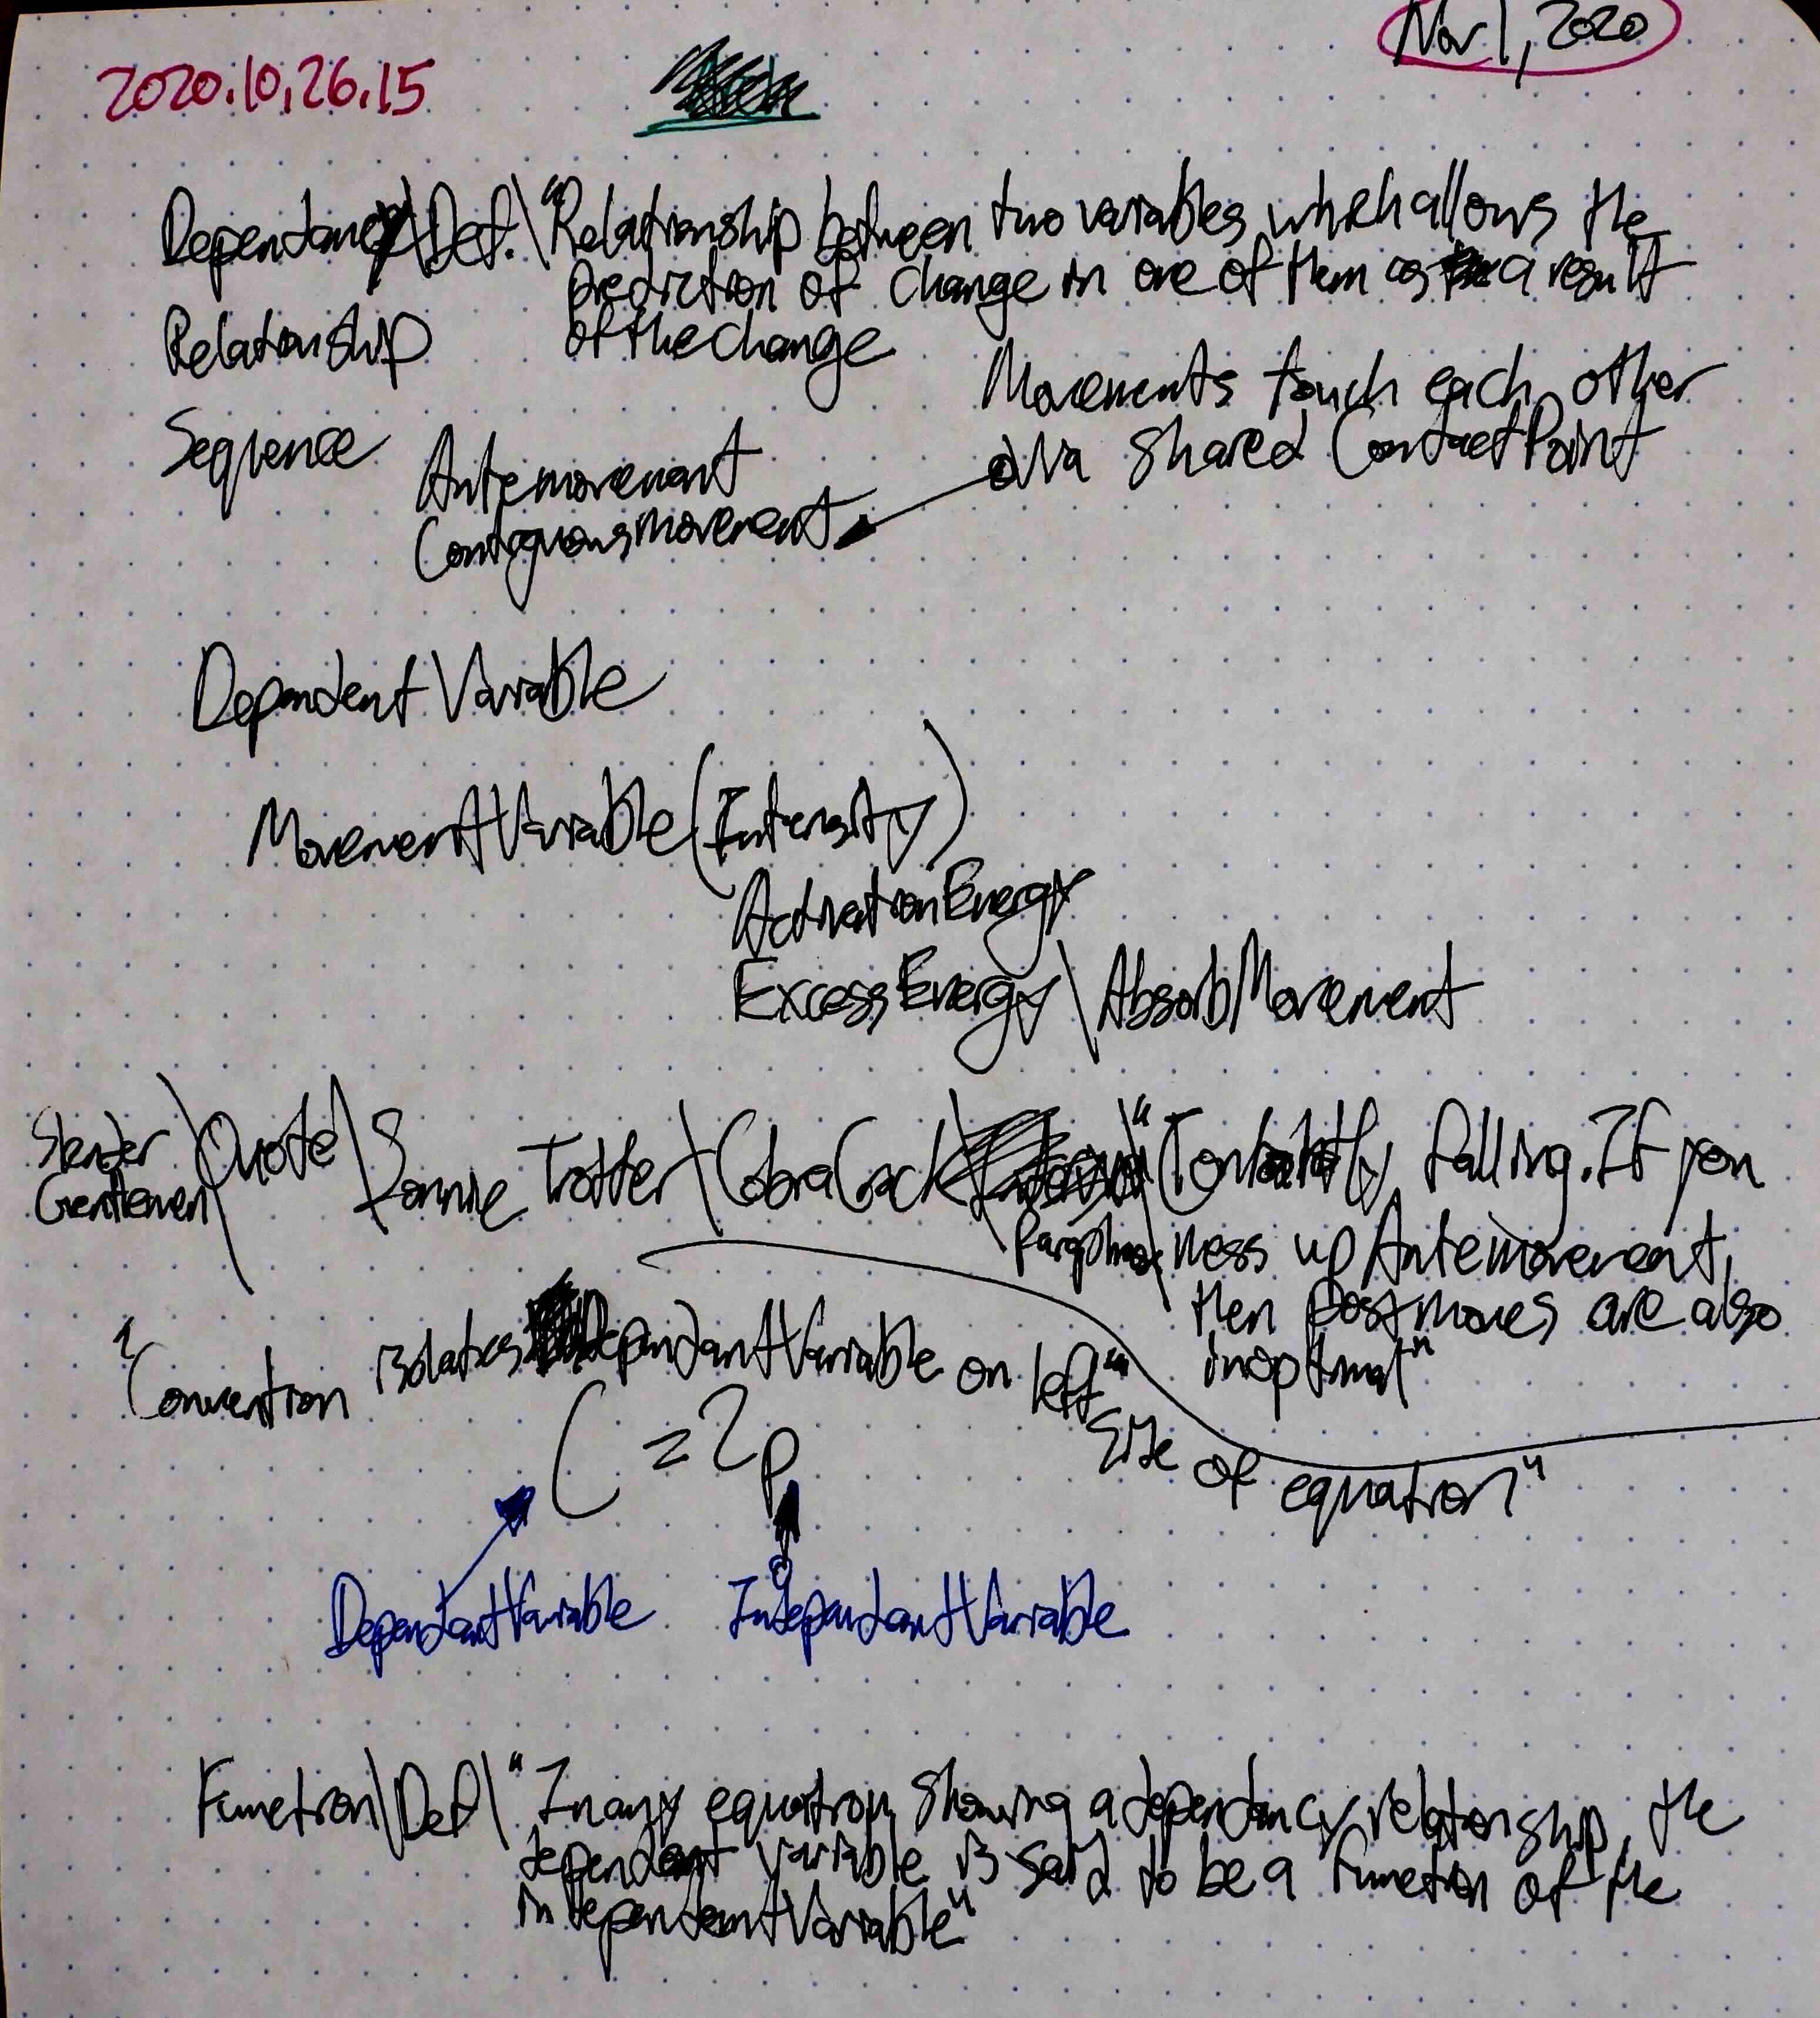 Nov 1, 2020
2020.10.26.15
Dependancy\Def.\"Relationship between two variables which allows the
prediction of change in one of them as a result
of the change
Relationship
Sequence
Movements touch each other
via shared ContactPoint
Antemovement
Contiguousmovement
Dependent Variable
MovementVariable(Intensity)
ActivationEnergy
ExcessEnergy\AbsorbMovement
Slender
Gentlemen\Quote\Sonnie Trotter\CobraCrack
Paraphrase\"Constantly falling. If you
mess up Antemovement,
then postmoves are also
inoptimal"
"Convention isolates DependantVariable on left
side of equation"
C = 2p
DependantVariable IndependantVariable
Function\Def\"In any equation showing a dependency relationship, the
dependent variable is said to be a function of the
independentVariable"